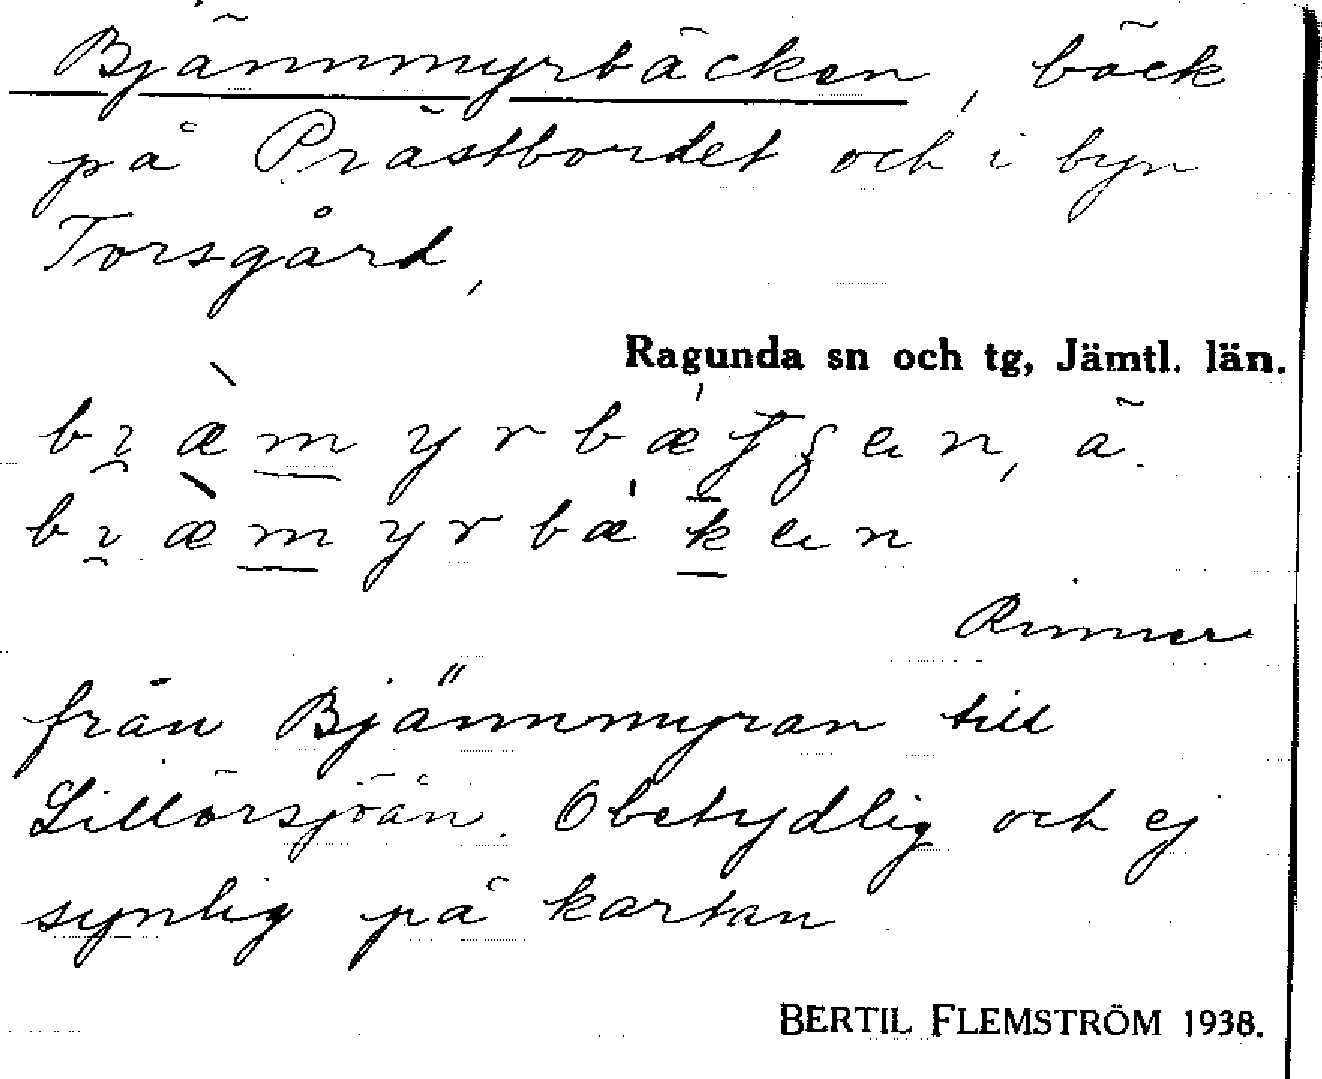 Bjännmyrbäcken, bäck
på Prästbordet och i byn
Torsgård,
Ragunda sn och tg, Jämtl. län.
från Bjännmyran till
Rinner
Lillörsjöån. Obetydlig och ej
synlig på kartan
BERTIL FLEMSTRÖM 1938.